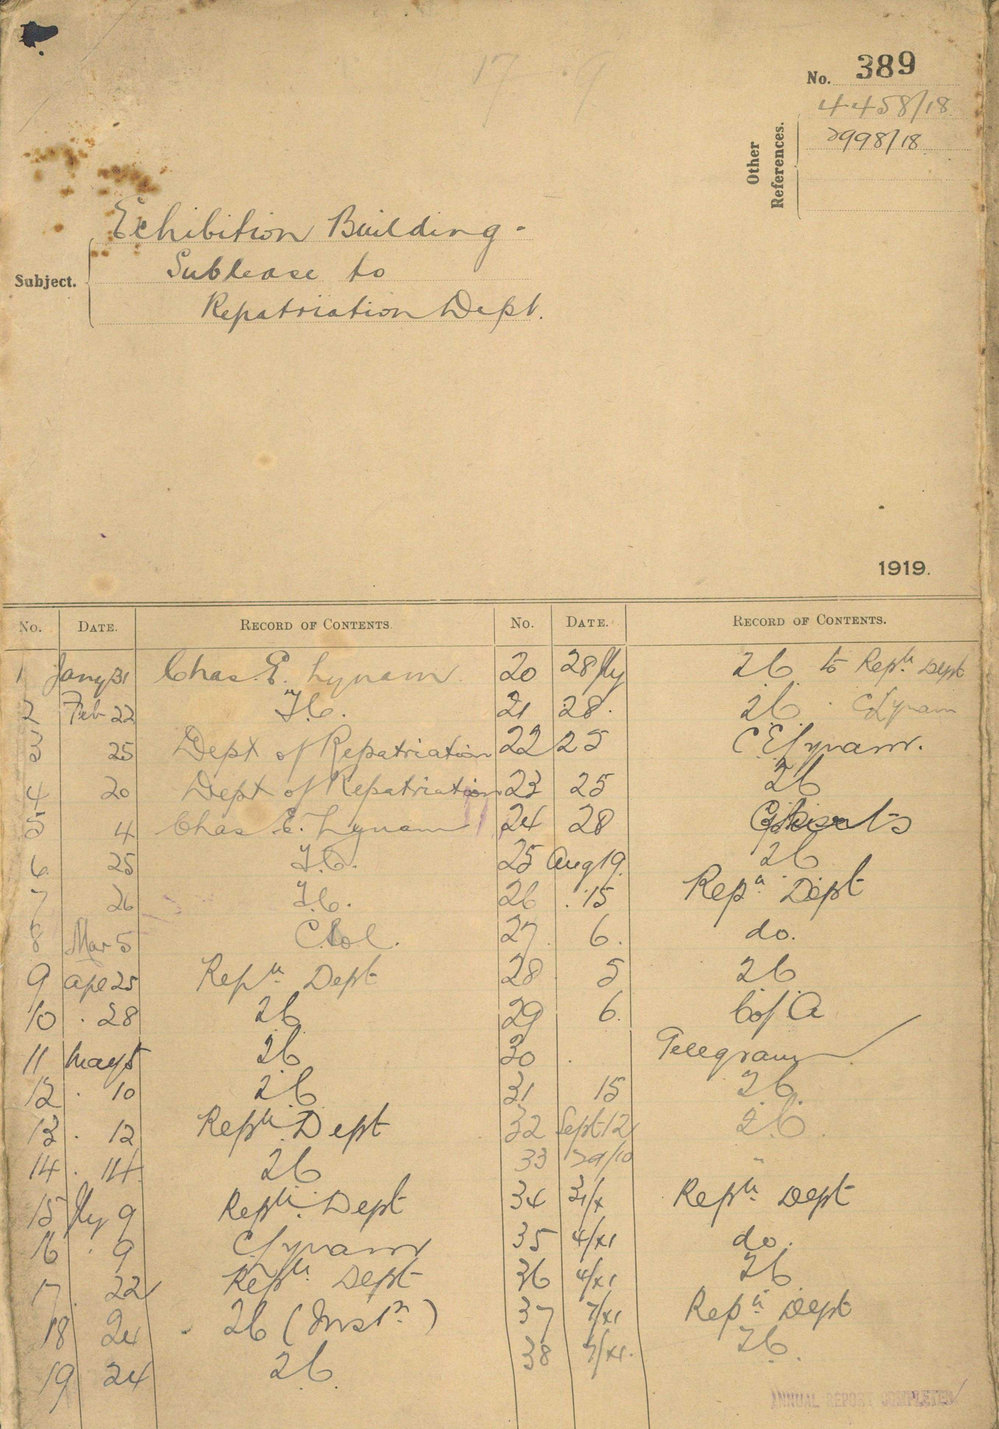 No. 389
4458/18
3998/18
Other References.
Subject.
Exhibition Building -
Sublease to
Repatriation Dept.
1919.
No. DATE. RECORD OF CONTENTS. No. DATE. RECORD OF CONTENTS.
1 Jany 31 Chas. E. Lynam 20 28 Jly T.C. to Repn. Dept
2 Feb 22 T.C. 21 28. T.C. C Lynam
3 25 Dept of Repatriation 22 25 C E Lynam.
4 20 Dept of Repatriation 23 25 T.C.
5 4 Chas. E. Lynam 24 28
6 25 T.C. 25 Aug 19. T.C.
7 26 T.C. 26 . 15 Repn. Dept
8 Mar 5 27 6. do.
9 Apl 25 Repn. Dept 28 5 T.C.
10 . 28 T.C. 29 6. C of A
11 May 5 T.C. 30 . Telegram
12 . 10 T.C. 31 15 T.C.
13 . 12 Repn. Dept 32 Sept 12 T.C.
14 . 14 T.C. 33 29/10 "
15 Jly 9 Repn. Dept 34 31/x Repn. Dept
16 . 9 C Lynam 35 4/xi do.
17 . 22 Repn. Dept 36 4/xi T.C.
18 24 T.C. (Instn.) 37 7/xi Repn. Dept
19 24 T.C. 38 7/xi. T.C.
ANNUAL REPORT COMPLETED